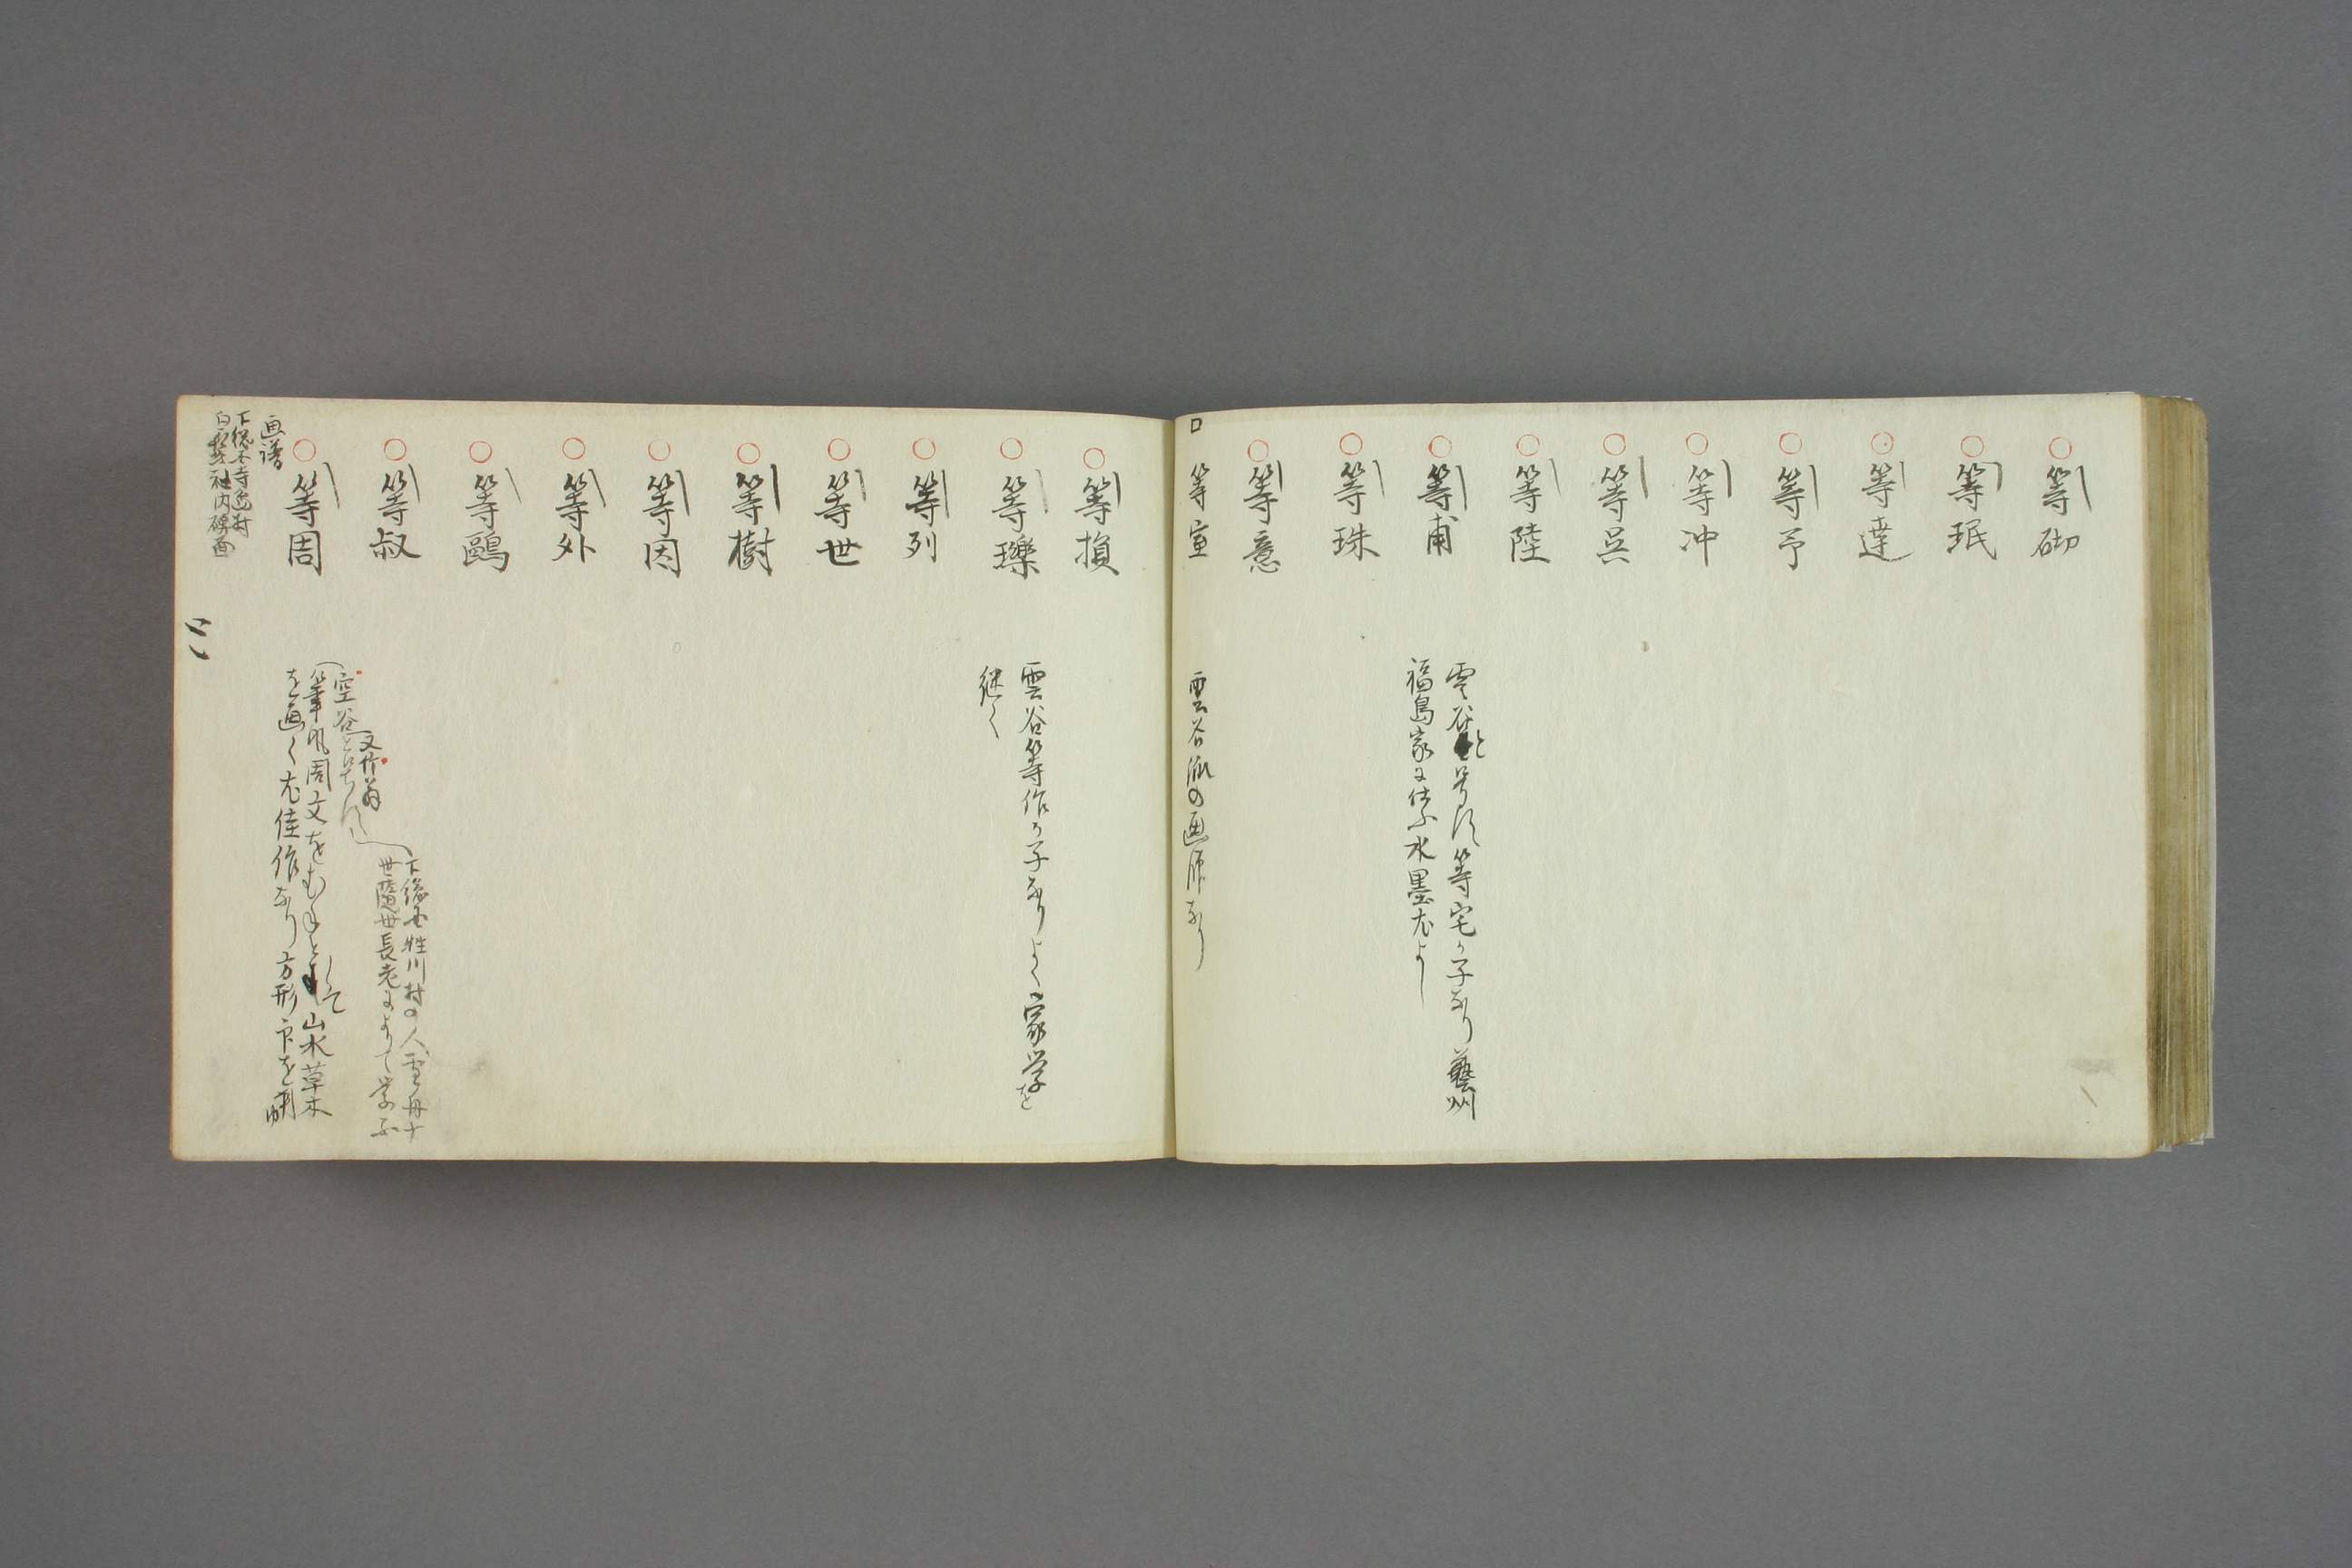 等砌
等珉
等達
等予
等冲
等呉
等陸
等甫
雲谷と号す 等宅の子なり 藝州
福島家に仕ふ 水墨尤よし
等珠
等意
等室
雲谷派の画师なり
等損
等璨
雲谷等作の子なり よく家学を
継く
等列
等世
等樹
等因
等外
等鷗
等叔
等周
下総国 川村の人 雪舟十
世 長老によりて学ふ
又竹翁
空谷と号す
筆風周文をむねとして山水草木
を画く 尤佳作なり 方形印を
画譜
下総 寺島村
白髭社内碑面